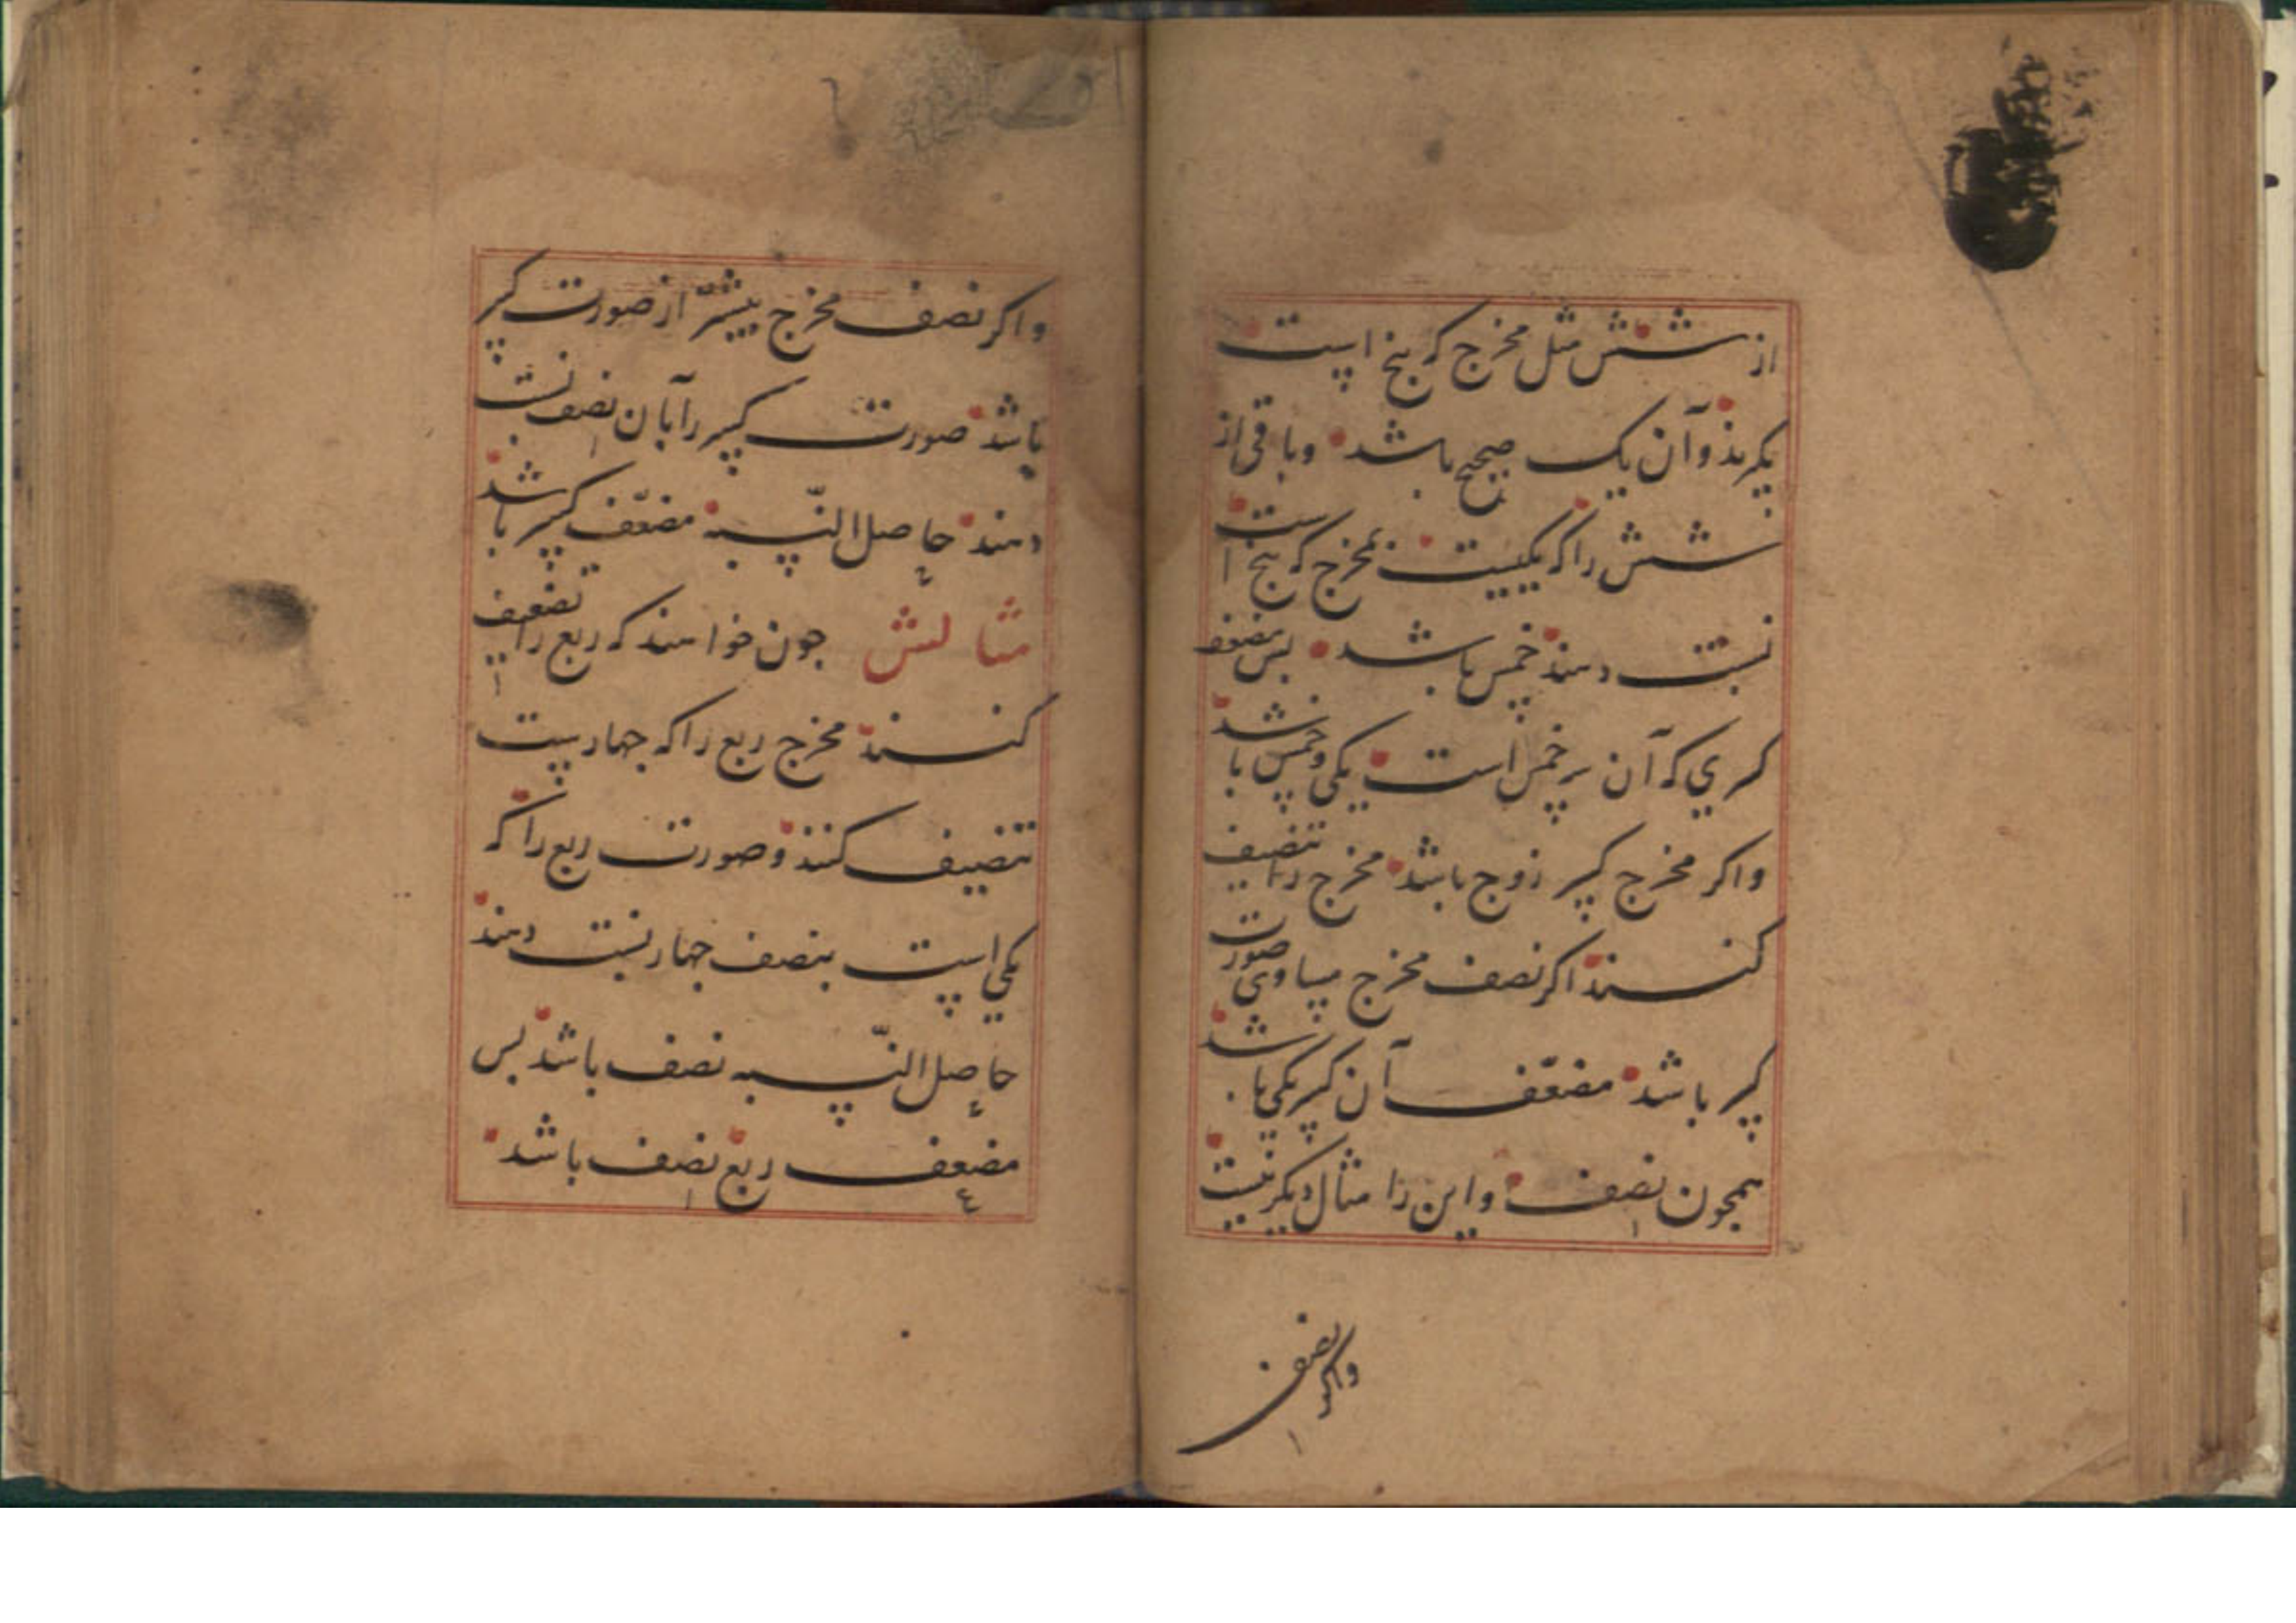 از شش مثل مخرج که پنج است
بگیرند و آن یک صحیح باشد وباقی از
شش را که یکیست بمخرج که پنج است
نسبت دهند خمس باشد بس مضعف
کسری که آن سه خمس است یکی وخمس باشد
واکر مخرج کسر زوج باشد مخرج را تنصیف
کنند اکر نصف مخرج مساوی صورت
کسر باشد مضعّف آن کسر یکی باشد
همجون نصف واین را مثال دیکر نیست
واکر نصف
واکر نصف مخرج بیشتر از صورت کسر
باشد صورت کسر را بآن نصف نسبت
دهند حاصل النّسبه مضعّف کسر باشد
مثالش جون خواهند که ربع را تضعیف
کنند مخرج ربع را که جهارست
تنصیف کنند وصورت ربع را که
یکی است بنصف جهار نسبت دهند
حاصل النّسبه نصف باشد بس
مضعف ربع نصف باشد